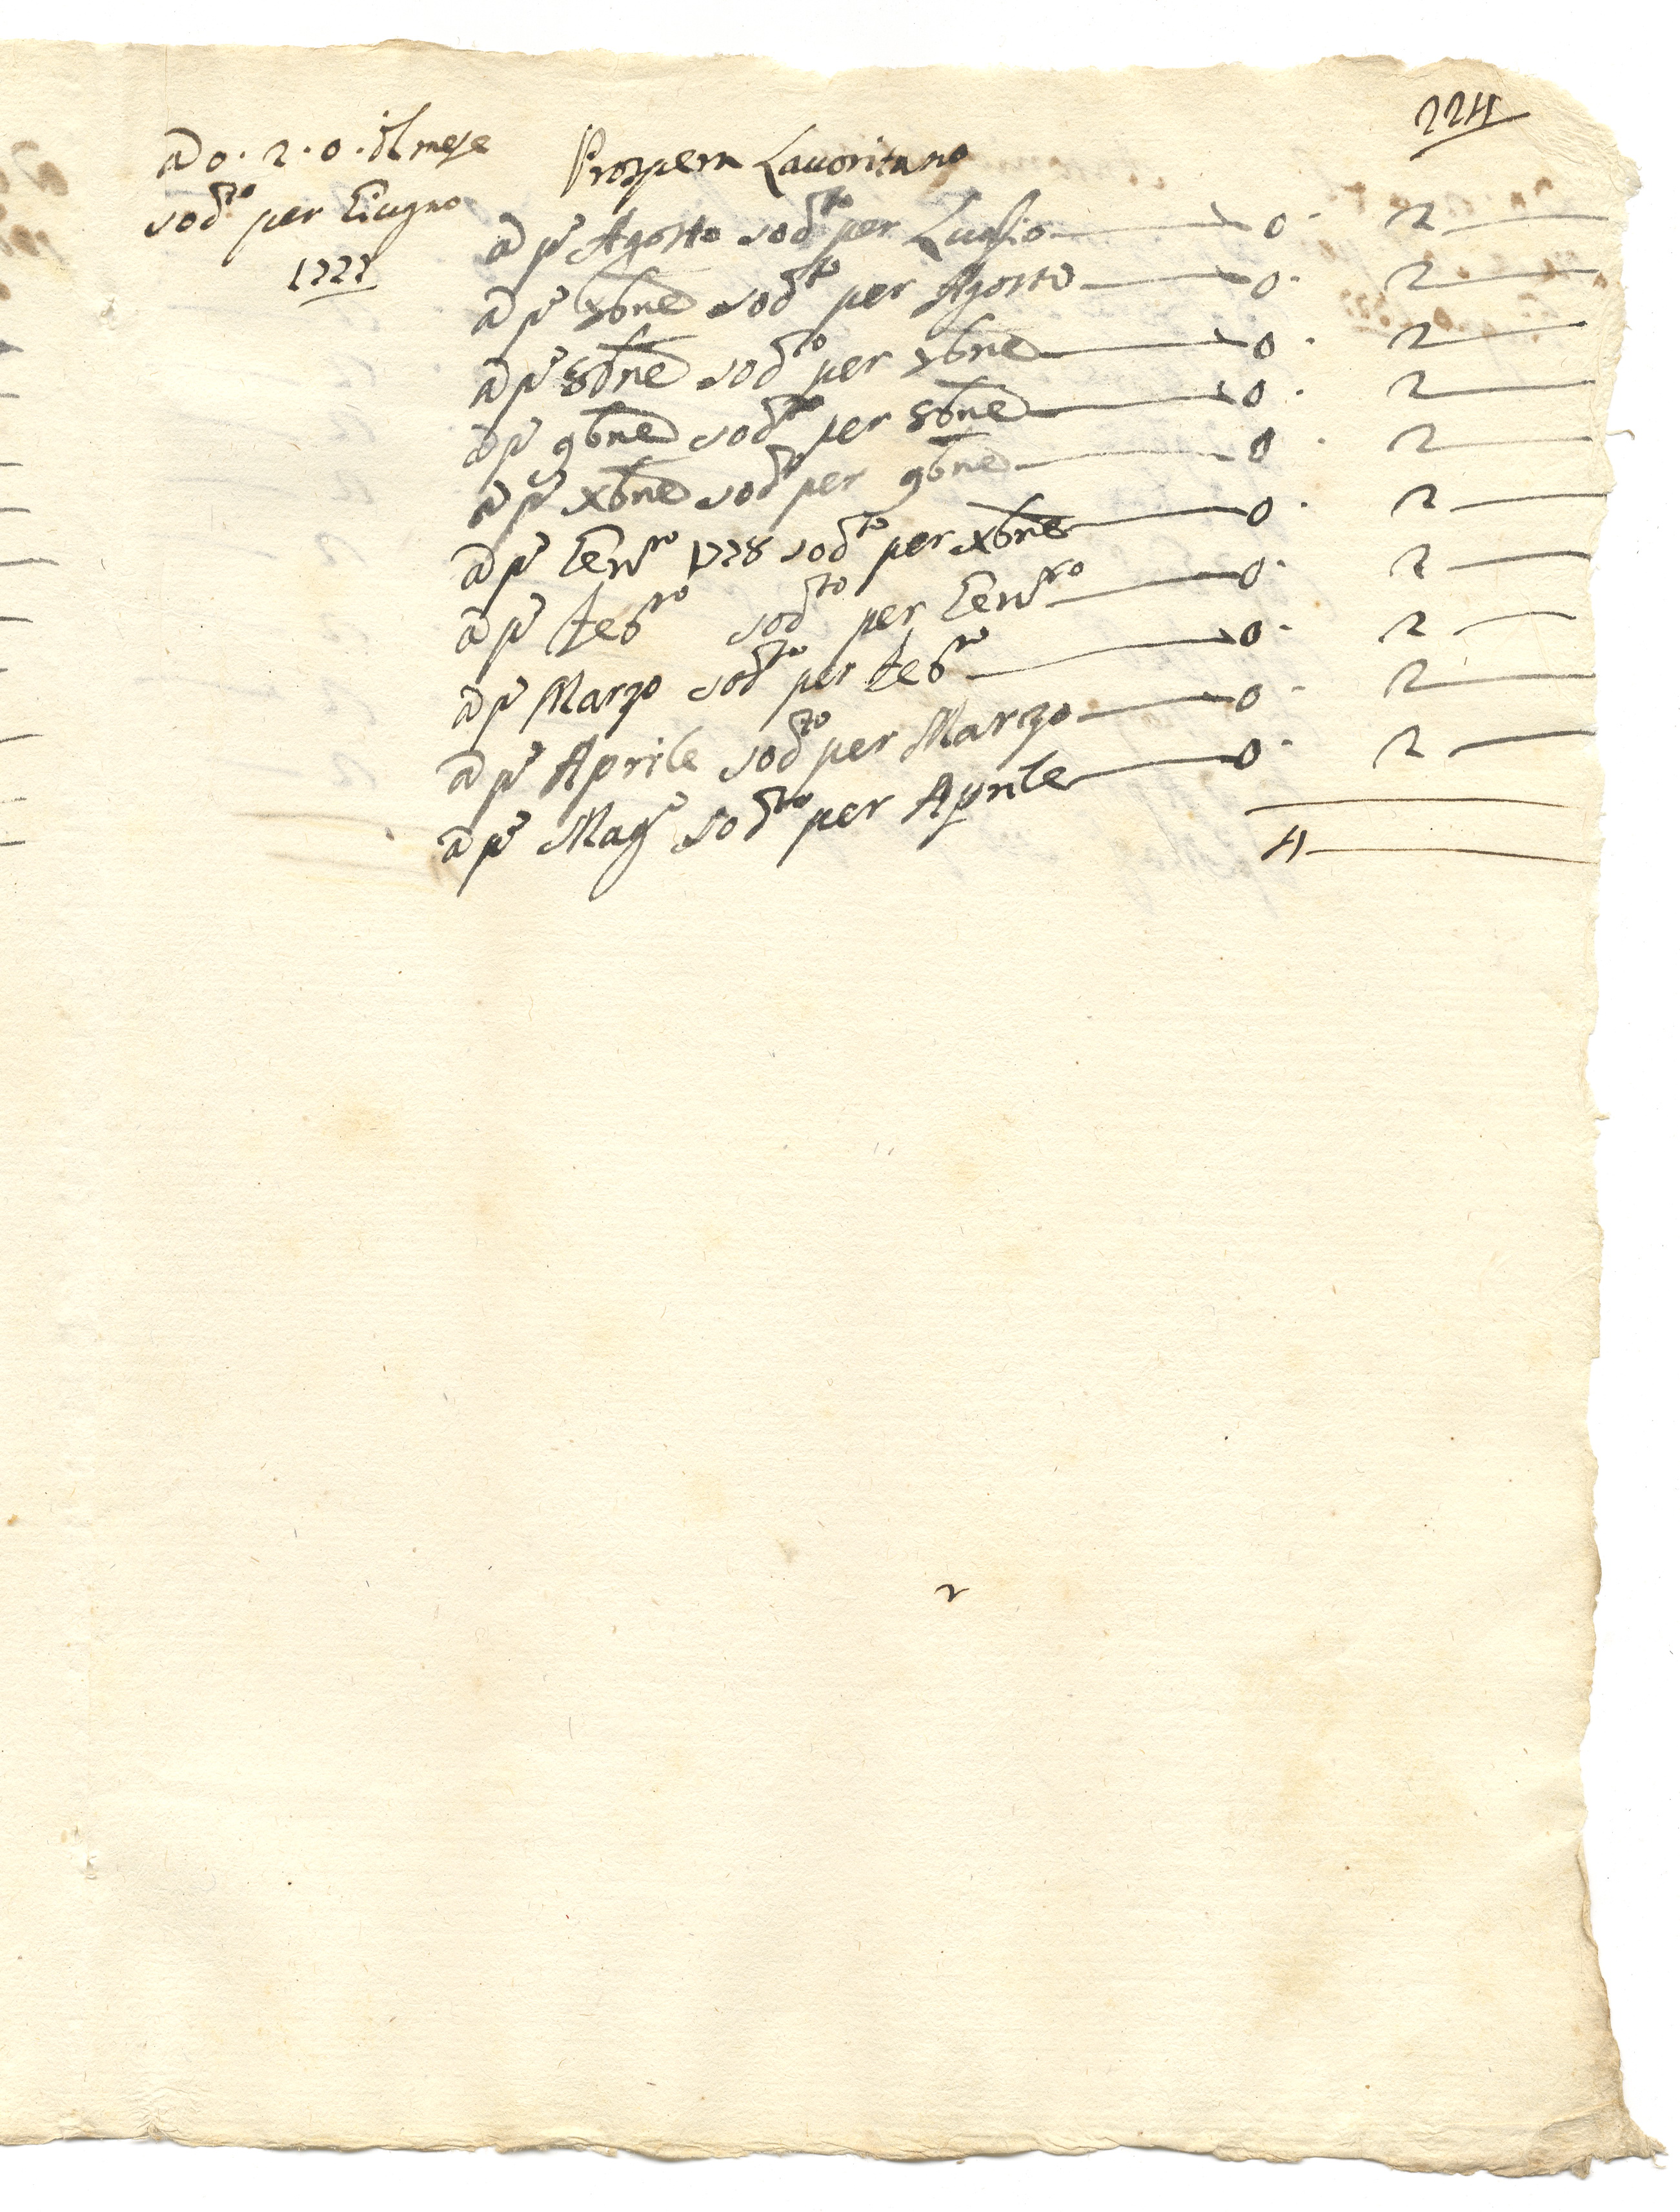 224
a 0. 2. 0. il mese
sodto per Giugno
1727
Prospera Lauoritano
a pº Agosto sodto per Luglio 0. 2
a pº 7bre sodto per Agosto 0. 2
a pº 8bre sodto per 7bre 0. 2
a pº 9bre sodto per 8bre 0. 2
a pº xbre sodto per 9bre 0. 2
a pº Genro 1728 sodto per xbre 0. 2
a pº Febro sodto per Genro 0. 2
a pº Marzo sodto per Febro 0. 2
a pº Aprile sodto per Marzo 0. 2
a pº Mago sodto per Aprile 0. 2
4